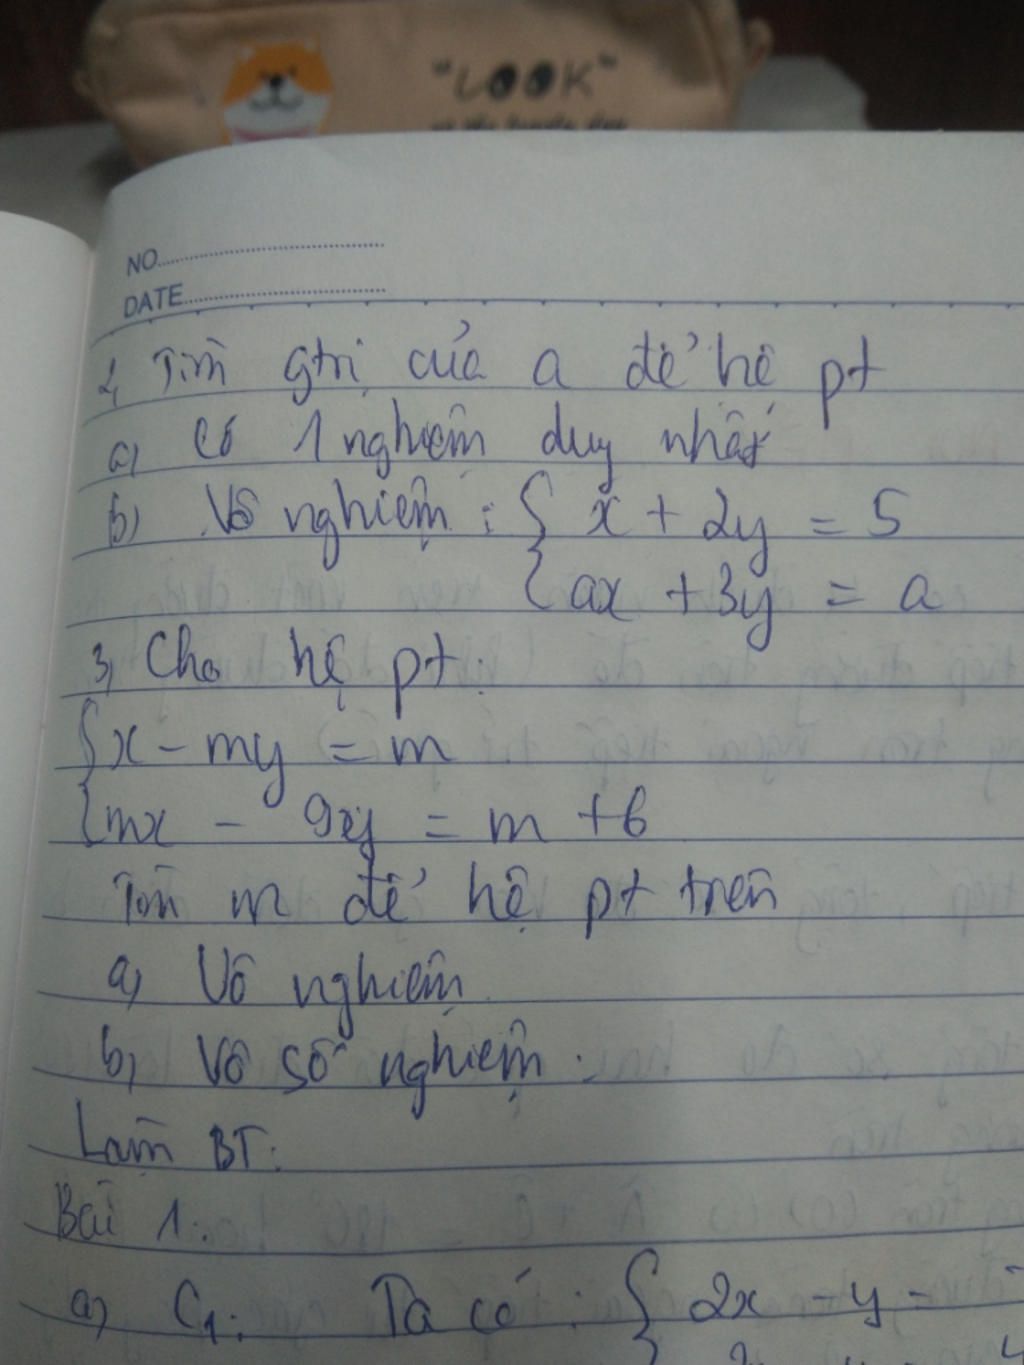 "LOOK"
NO
DATE
2, Tìm gtrị của a để hệ pt
a, có 1 nghiệm duy nhất
b, Vô nghiệm : { x + 2y = 5
ax + 3y = a
3, Cho hệ pt:
{ x - my = m
mx - 9y = m + 6
Tìm m để hệ pt trên
a, Vô nghiệm
b, Vô số nghiệm.
Làm BT:
Bài 1:
a, C1: Ta có : { 2x - y =